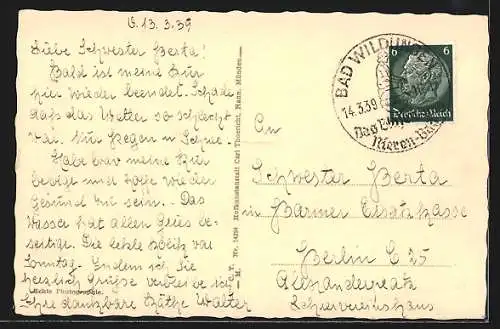 d. 13.3.39
Liebe Schwester Berta!
Bald ist meine Kur
hier wieder beendet. Schade
daß das Wetter so schlecht
war. Nur Regen u. Schnee.
Habe brav meine Kur
Gesund zu sein. Das
Wasser hat allen Gries be-
seitigt. Die letzte war
Sonntag. Indem ich Sie
herzlich Grüße verbleibe ich
Ihre dankbare Käthe Walter
Echte Photographie.
Hofkunstanstalt Carl Thoericht, Hann. Münden.
BAD WILDUNGEN
14.3.39
Das
Nieren-
6 6
Deutsches Reich
An
Schwester Berta
in Barmer Ersatzkasse
Berlin C 25
Alexanderplatz
Lehrervereinshaus